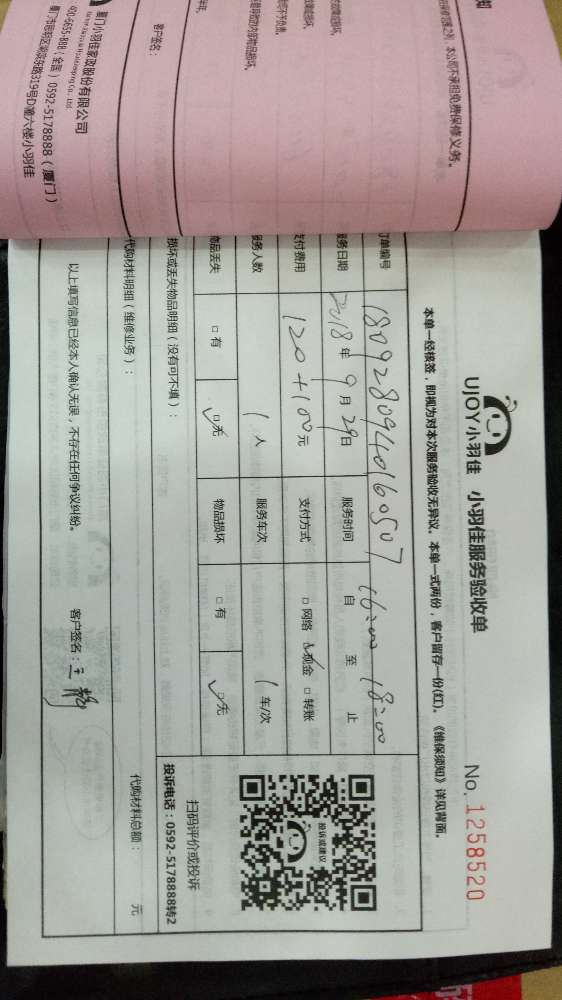 UJOY小羽佳 小羽佳服务验收单
No. 1258520
本单一经核签，即视为对本次服务验收无异议。本单一式两份，客户留存一份(红)。《维保须知》详见背面。
订单编号 1809280940160507
服务日期 2018年9月29日 服务时间 自16:00至18:00止
支付费用 120+100元 支付方式 □网络 ☑现金 □转账
服务人数 1人 服务车次 1车/次
物品丢失 □有 ☑无 物品损坏 □有 ☑无
投诉或建议
扫码评价或投诉
投诉电话：0592-5178888转2
损坏或丢失物品明细（没有可不填）：
代购材料明细（维修业务）：
代购材料总额： 元
以上填写信息已经本人确认无误，不存在任何争议纠纷。
客户签名：
知
本公司不承担免费保修义务。
客户签名：
厦门小羽佳家政股份有限公司
400-6655-888（全国）0592-5178888（厦门）